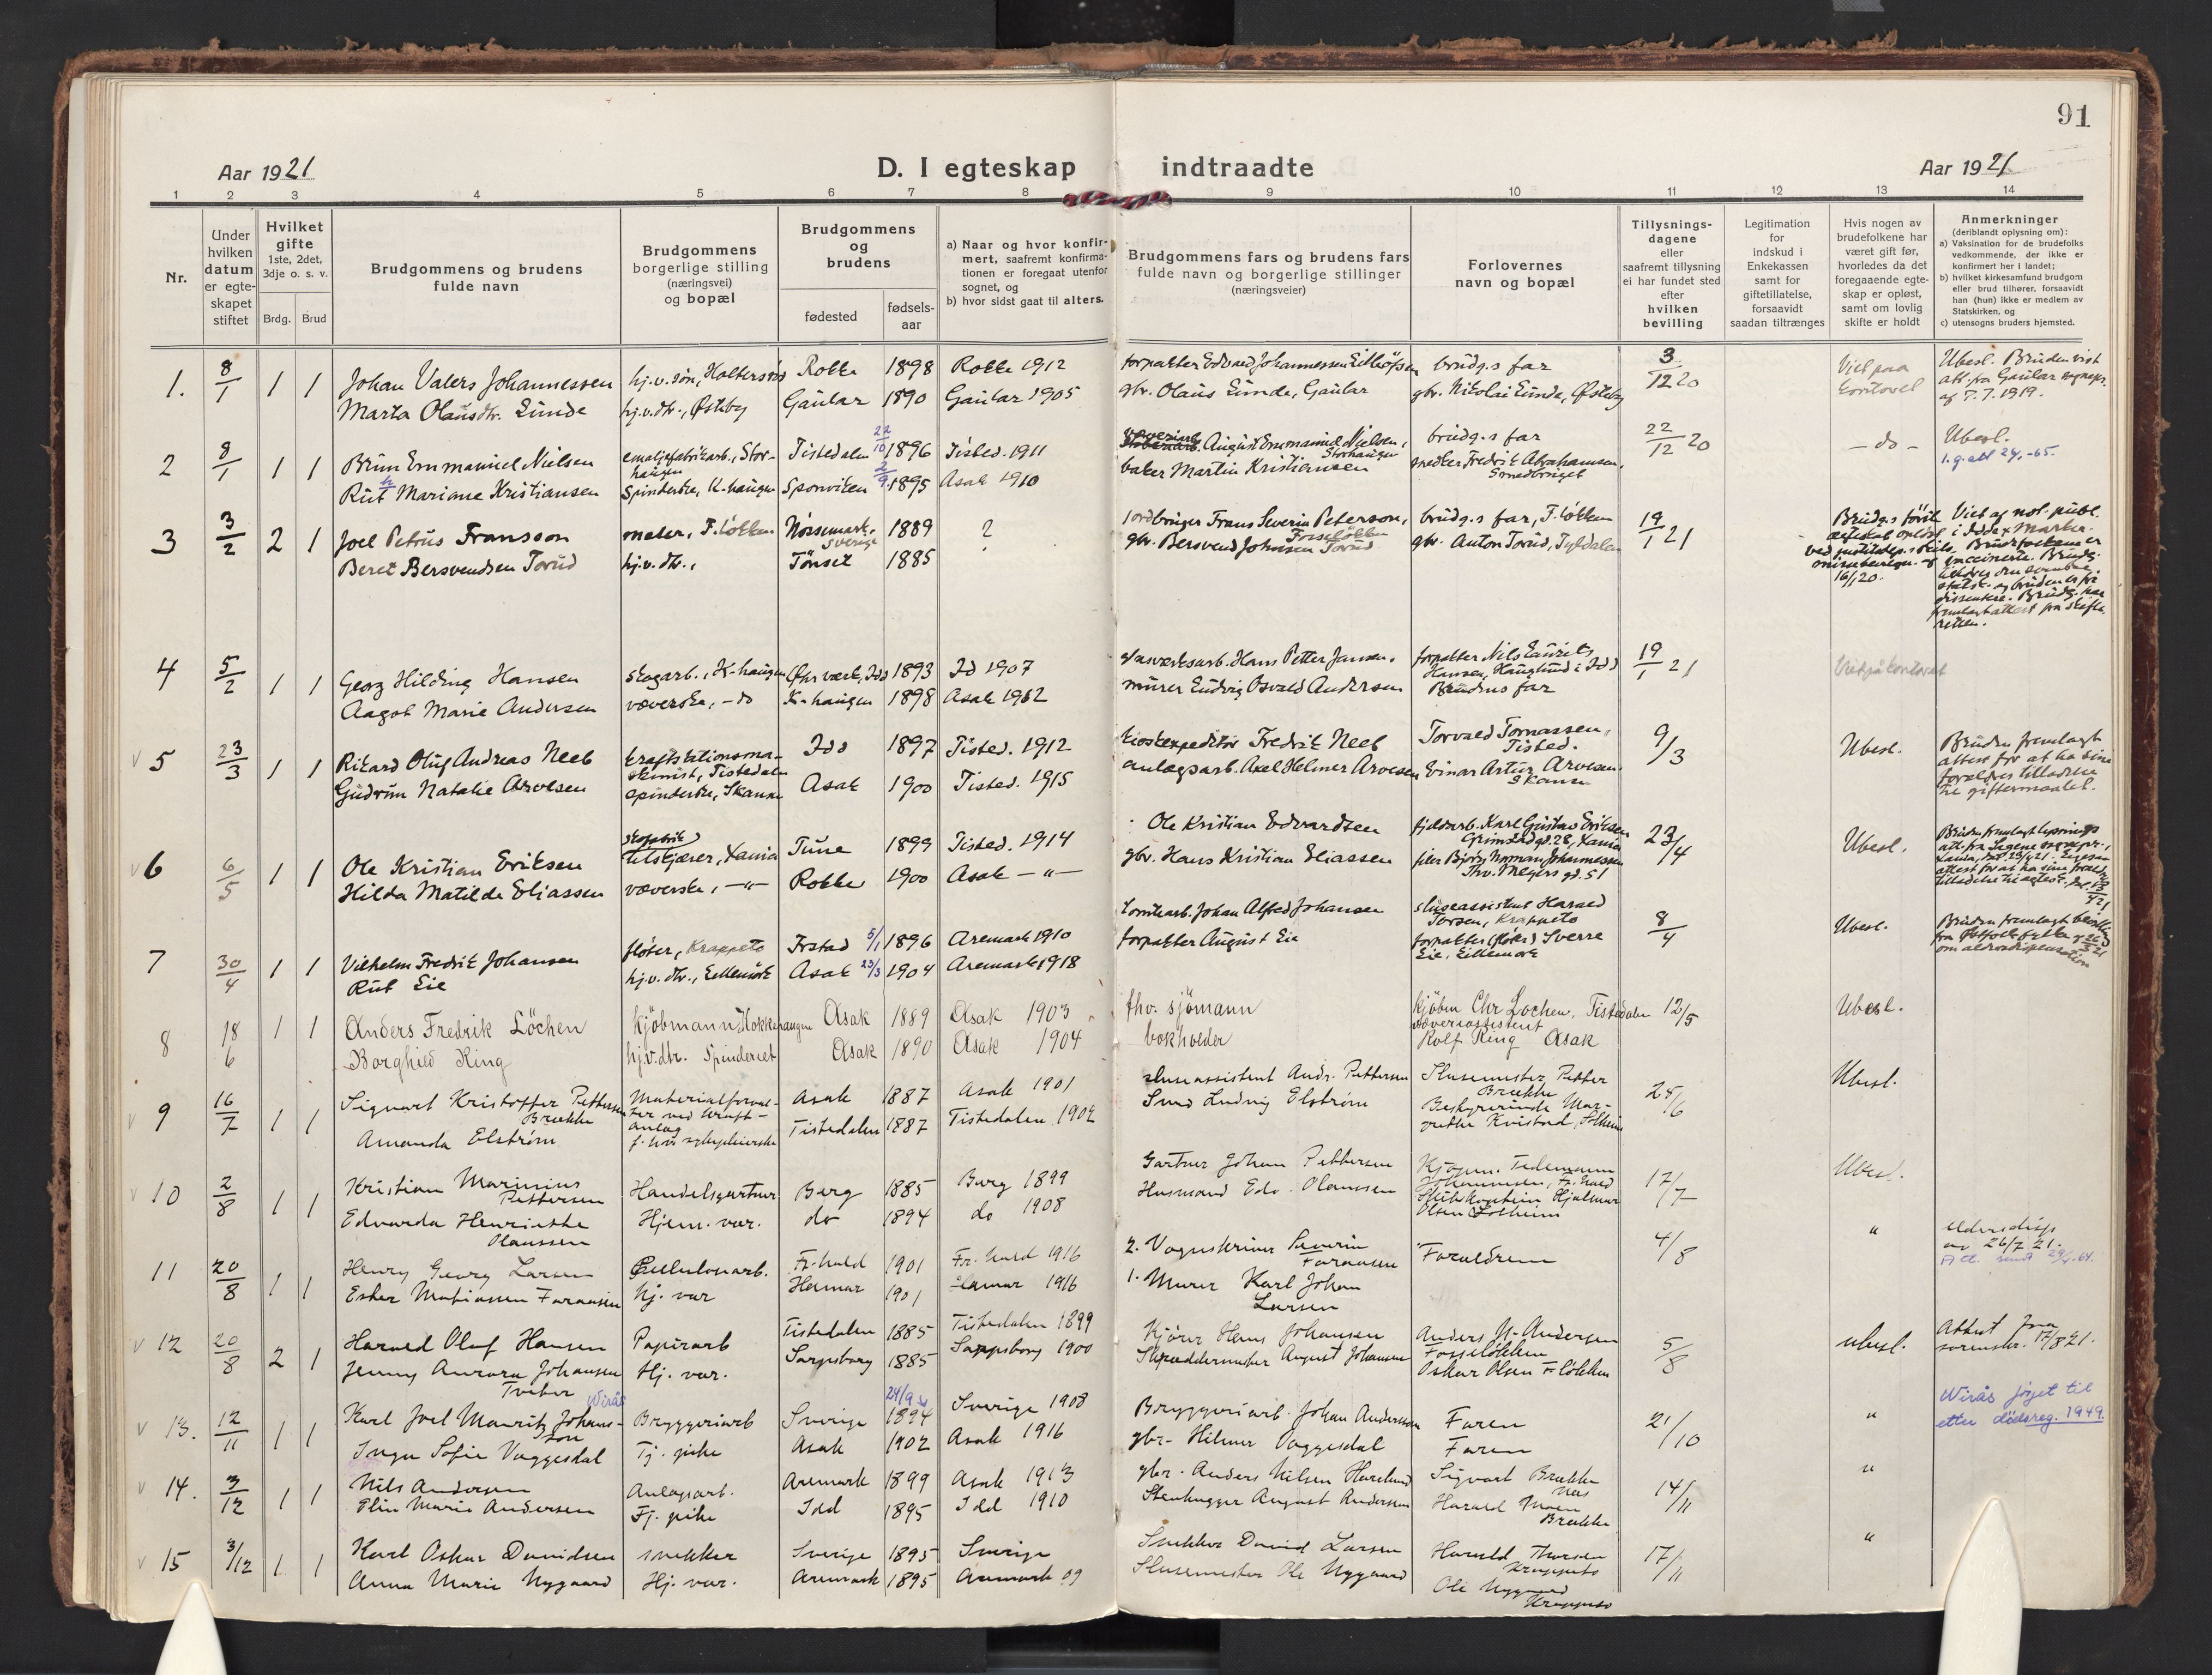 91
Aar 1921
D. I egteskap indtraadte
Aar 1921
1 2 3 4 5 6 7 8 9 10 11 12 13 14
Nr.
Under hvilken datum er egteskapet stiftet
Hvilket gifte 1ste, 2det, 3dje o. s. v.
Brdg. Brud
Brudgommens og brudens fulde navn
Brudgommens borgerlige stilling (næringsvei) og bopæl
Brudgommens og brudens
fødested
fødsels-aar
a) Naar og hvor konfirmert, saafremt konfirmationen er foregaat utenfor sognet, og
b) hvor sidst gaat til alters.
Brudgommens fars og brudens fars fulde navn og borgerlige stillinger (næringsveier)
Forlovernes navn og bopæl
Tillysningsdagene eller saafremt tillysning ei har fundet sted efter hvilken bevilling
Legitimation for indskud i Enkekassen samt for giftetillatelse, forsaavidt saadan tiltrænges
Hvis nogen av brudefolkene har været gift før, hvorledes da det foregaaende egteskap er opløst, samt om lovlig skifte er holdt
Anmerkninger (deriblandt oplysning om):
a) Vaksination for de brudefolks vedkommende, der ikke er konfirmert her i landet;
b) hvilket kirkesamfund brudgom eller brud tilhører, forsaavidt han (hun) ikke er medlem av Statskirken, og
c) utensogns bruders hjemsted.
1. 8/1 1 1 Johan Valers Johannessen Rokke 1898 Rokke 1912 brudg.s far 3/12 20 Viet paa kontoret Ubesl.
Marta Olausdtr. Lunde hj.v.dtr., Østeby Gaular 1890 Gaular 1905 gbr. Olaus Lunde, Gaular gbr. Nikolai Lunde, Østeby
af 7.7.1919.
2 8/1 1 1 Brun Emmanuel Nielsen emaljefabrikarb., Storhaugen Tistedalen 22/10 1896 Tisted. 1911 August Emmanuel Nielsen, Storhaugen brudg.s far 22/12 20 - do - Ubesl.
Rut h Mariane Kristiansen spinderske, K-haugen Sponviken 2/9 1895 Asak 1910 baker Martin Kristiansen Fredrik Abrahamsen,
3 3/2 2 1 Joel Petrus Fransson maler, F. løkken Sverige 1889 ? Frans Severin Peterson, Fosseløkken brudg.s far, F. løkken 19/1 21
Beret Bersvendsen Torud hj.v.dtr., Tønset 1885 gbr. Bersvend Johnsen Torud gbr. Anton Torud, Tyldalen
4 5/2 1 1 Georg Hilding Hansen skogarb., K-haugen 1893 Id 1907 Hans Petter Jansen. forpakter Nils Laurits Hansen, Hauglund i Idd 19/1 21 Viet på kontoret
Aagot Marie Andersen væverske, - do K-haugen 1898 Asak 1912 murer Ludvig Osvald Andersen Brudens far
5 23/3 1 1 Rikard Oluf Andreas Neeb kraftstationsmaskinist, Tistedalen Idd 1897 Tisted. 1912 Fredrik Neeb Torvald Tomassen, Tisted. 9/3 Ubesl. Bruden fremlagt attest for at ha sine forældres tilladelse til giftermaalet.
Gudrun Natalie Arvesen spinderske, Skansen Asak 1900 Tisted. 1915 anlægsarb. Axel Helmer Arvesen Einar Artur Arvesen. Skansen
6 6/5 1 1 Ole Kristian Eriksen skofabrik tilskjærer, Xania Tune 1899 Tisted. 1914 Ole Kristian Edvardsen Karl Gustav Eriksen Grimstadgd. 28, Xania 23/4 Ubesl.
Hilda Matilde Eliassen væverske, - " - Rokke 1900 Asak - " - gbr. Hans Kristian Eliassen Bjørn Norman Johannessen Thv. Meyers gd. 51
7 30/4 1 1 Vilhelm Fredrik Johansen fløter, Krappeto 5/1 1896 Aremark 1910 Johan Alfred Johansen sluseassistent Harald Torsen, Krappeto 8/4 Ubesl.
Rut Eie hj.v.dtr., Lillemork Asak 23/3 1904 Aremark 1918 forpakter August Eie Sverre Eie, Lillemork
8 18/6 1 1 Anders Fredrik Löchen kjöbmann Hokkehaugen Asak 1889 Asak 1903 fhv. sjömann Kjöbm Chr Lochen, Tistedalen 12/5 Ubesl.
Borghild Ring hj.v.dtr. Spinderiet Asak 1890 Asak 1904 bokholder Rolf Ring Asak
9 16/7 1 1 Sigvart Kristoffer Pettersen Brække Materialforvalter ved kraftanlæg Asak 1887 Asak 1901 Sluseassistent Andr. Pettersen Slusemester Petter Brække 25/6 Ubesl.
Amanda Elström Tistedalen 1887 Tistedalen 1902 Smed Ludvig Elström
10 2/8 1 1 Kristian Marinius Pettersen Handelsgartner Berg 1885 Berg 1899 Gartner Johan Pettersen 17/7 Ubesl.
Edvarda Henriette Olaussen Hjem. vær. do 1894 do 1908 Husmand Edv. Olaussen Hjalmar Olsen Solheim
11 20/8 1 1 Henry Georg Larsen Cellulosearb. Fr. hald 1901 Fr. hald 1916 2. Severin Foraasen Forældrene 4/8 " Aldersdisp av 26/7 21.
Ester Mathiassen Foraasen Hj. vær Hamar 1901 Hamar 1916 1. Murer Karl Johan Larsen
12 20/8 2 1 Harald Oluf Hansen Papirarb Tistedalen 1885 Tistedalen 1899 Kjører Hans Johansen Anders M. Andersen Fosseløkken 5/8 ubesl. Attest fra sorenskr. 17/8 21.
Jenny Aurora Johansen Tveter Hj. vær. Sarpsborg 1885 Sarpsborg 1900 Skræddermester August Johansen Oskar Olsen F løkken
13. 12/11 1 1 Karl Joel Mauritz Johansson Wirås Bryggeriarb Sverige 24/9 1894 Sverige 1908 Bryggeriarb. Johan Andersson Faren 21/10 " Wirås föjet til etter dödsreg. 1949.
Inga Sofie Vaggesdal Tj. pike Asak 1902 Asak 1916 gbr- Hilmar Vaggesdal Faren
14. 3/12 1 1 Nils Andersen Anlægsarb. Aremark 1899 Asak 1913 gbr. Anders Nilsen Sigvart Brække Næs 14/11 "
Elin Marie Andersen Tj. pike Idd 1895 Idd 1910 Stenhugger August Andersen Harald Moen Brække
15 3/12 1 1 Karl Oskar Davidsen snekker Sverige 1895 Sverige Snekker David Larsen Harald Thorsen Krappeto 17/11 "
Anna Marie Nygaard Hj. vær. Aremark 1895 Aremark 09 Slusemester Ole Nygaard Ole Nygaard Krappeto